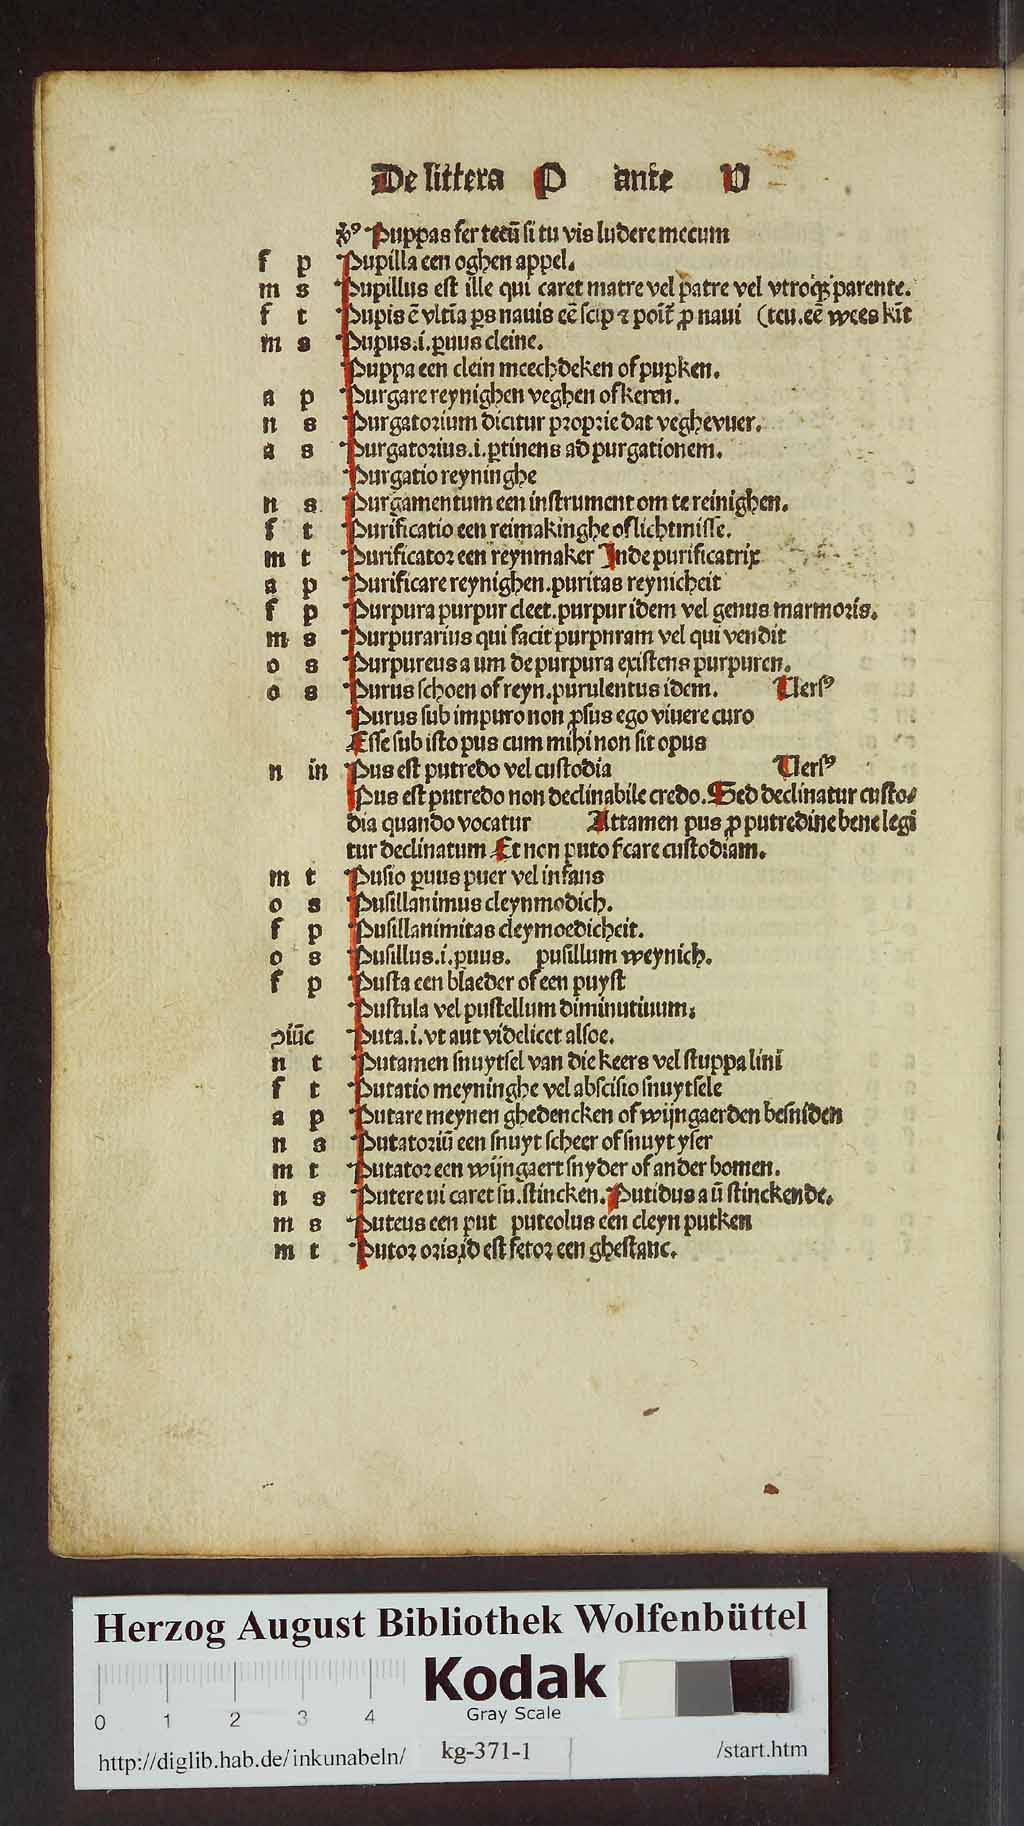 De littera P ante U
v̾ꝰ Puppas fer tecū si tu vis ludere mecum
f p Pupilla een oghen appel.
m s Pupillus est ille qui caret matre vel patre vel vtroq̃ꝫ parente.
f t Pupis ē vltīa ps nauis eē scip ⁊ poīt̃ ꝓ naui (teu. eē wees kīt
m s Pupus .i. puus cleine.
Puppa een clein meechdeken of pupken.
a p Purgare reynighen veghen of keren.
n s Purgatorium dicitur proprie dat veghevuer.
a s Purgatorius .i. ꝑtinens ad purgationem.
Purgatio reyninghe
n s Purgamentum een instrument om te reinighen.
f t Purificatio een reimakinghe of lichtmisse.
m t Purificator een reynmaker Inde purificatrix
a p Purificare reynighen. puritas reynicheit
f p Purpura purpur cleet. purpur idem vel genus marmoris.
m s Purpurarius qui facit purpuram vel qui vendit
o s Purpureus a um de purpura existens purpuren.
o s Purus schoen of reyn. purulentus idem. Uersꝰ
Purus sub impuro non ꝓsus ego viuere curo
Esse sub isto pus cum mihi non sit opus
n in Pus est putredo vel custodia Uersꝰ
Pus est putredo non declinabile credo. Sed declinatur custo⸗
dia quando vocatur Attamen pus ꝓ putredine bene legi
tur declinatum Et non puto fcare custodiam.
m t Pusio puus puer vel infans
o s Pusillanimus cleynmodich.
f p Pusillanimitas cleymoedicheit.
o s Pusillus .i. puus. pusillum weynich.
f p Pusta een blaeder of een puyst
Pustula vel pustellum diminutiuum.
ꝯiūc Puta .i. vt aut videlicet alsoe.
n t Putamen snuytsel van die keers vel stuppa lini
f t Putatio meyninghe vel abscisio snuytsele
a p Putare meynen ghedencken of wijngaerden besniden
n s Putatoriū een snuyt scheer of snuyt yser
m t Putator een wijngaert snyder of ander bomen.
n s Putere ui caret su. stincken. Putidus a ū stinckende.
m s Puteus een put puteolus een cleyn putken
m t Putor oris, id est fetor een ghestanc.
Herzog August Bibliothek Wolfenbüttel
Kodak
Gray Scale
0 1 2 3 4
http://diglib.hab.de/inkunabeln/ kg-371-1 /start.htm